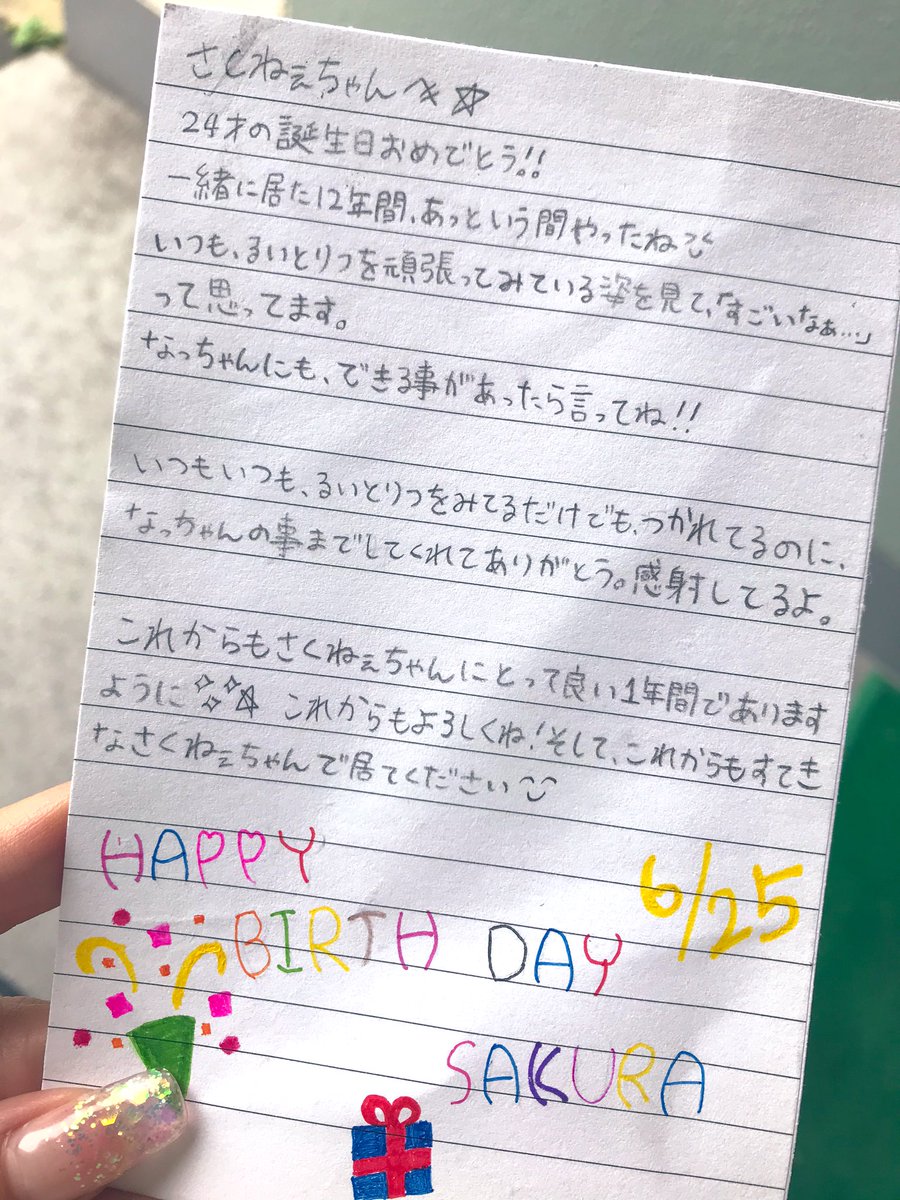 さくねぇちゃんへ☆
24才の誕生日おめでとう!!
一緒に居た12年間、あっという間やったね
いつも、るいとりつを頑張ってみている姿を見て、「すごいなぁ…」
って思ってます。
なっちゃんにも、できる事があったら言ってね!!
いつもいつも、るいとりつをみてるだけでも、つかれてるのに、
なっちゃんの事までしてくれてありがとう。感射してるよ。
これからもさくねぇちゃんにとって良い1年間であります
ように これからもよろしくね!そして、これからもすてき
なさくねぇちゃんで居てください
HAPPY
6/25
BIRTH DAY
SAKURA